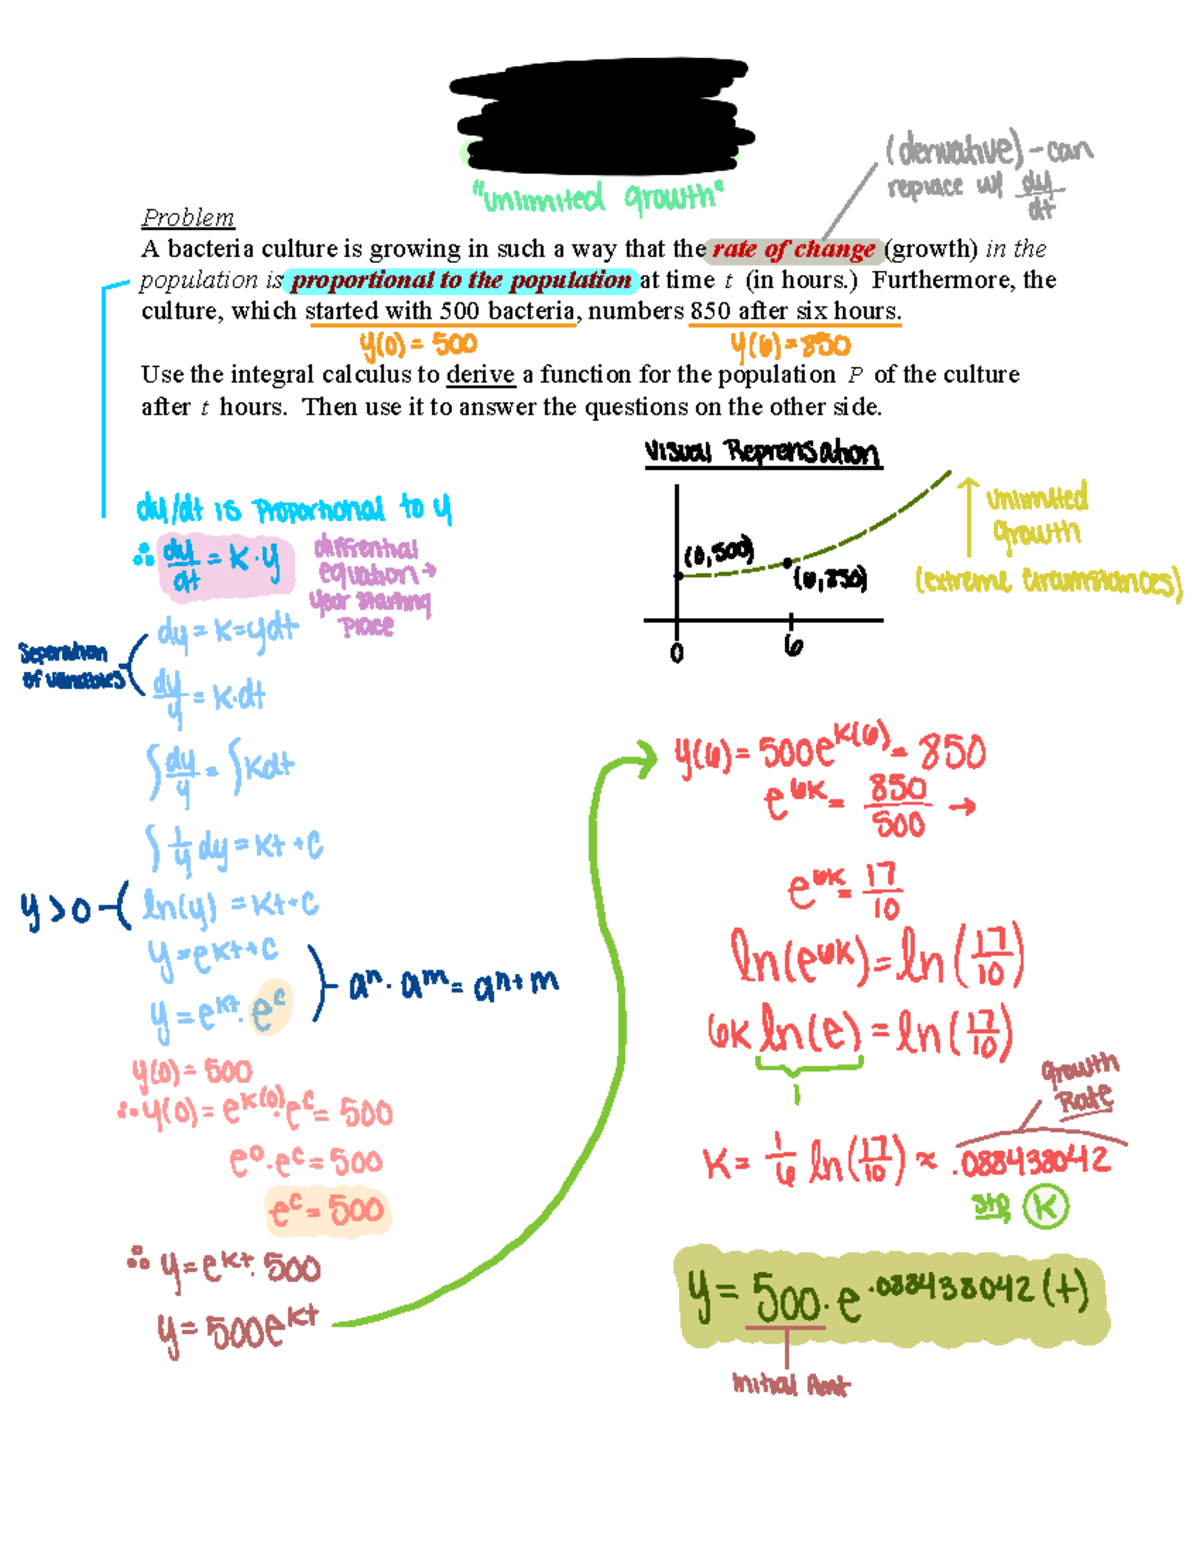 "unlimited growth"
(derivative) - can
replace w/ dy/dt
Problem
A bacteria culture is growing in such a way that the rate of change (growth) in the
population is proportional to the population at time t (in hours.) Furthermore, the
culture, which started with 500 bacteria, numbers 850 after six hours.
y(0) = 500
y(6) = 850
Use the integral calculus to derive a function for the population P of the culture
after t hours. Then use it to answer the questions on the other side.
Visual Reprensation
(0,500)
(6,850)
0
6
unlimited
growth
(extreme circumstances)
dy/dt is proportional to y
∴ dy/dt = k·y
diffrential
equation →
your starting
place
Separation
of variables
dy = k=ydt
dy/y = k·dt
∫ dy/y = ∫ kdt
∫ 1/y dy = kt + c
y > 0
ln(y) = kt + c
y = e^kt+c
y = e^kt · e^c
aⁿ · a^m = a^n+m
y(0) = 500
∴ y(0) = e^k(0) · e^c = 500
e^0 · e^c = 500
e^c = 500
∴ y = e^kt · 500
y = 500e^kt
y(6) = 500e^k(6) = 850
e^6k = 850/500 →
e^6k = 17/10
ln(e^6k) = ln(17/10)
6k ln(e) = ln(17/10)
1
Growth
Rate
k = 1/6 ln(17/10) ≈ .088438042
k
y = 500 · e^.088438042(t)
Initial Amt